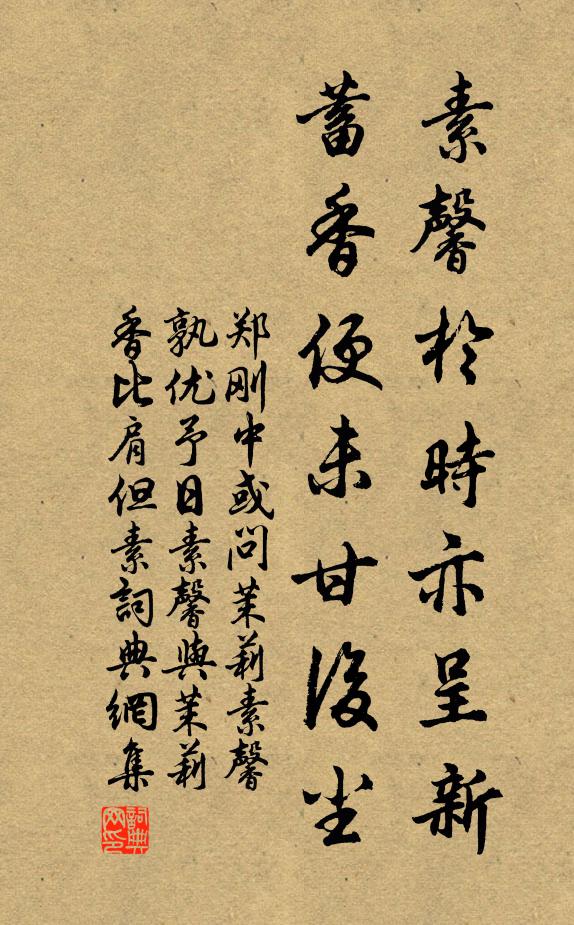 素馨於時亦呈新
蓄香便未甘後尘
郑刚中或问茉莉素馨
孰优予日素馨與茉莉
香比肩但素詞典網集
詞典
网印